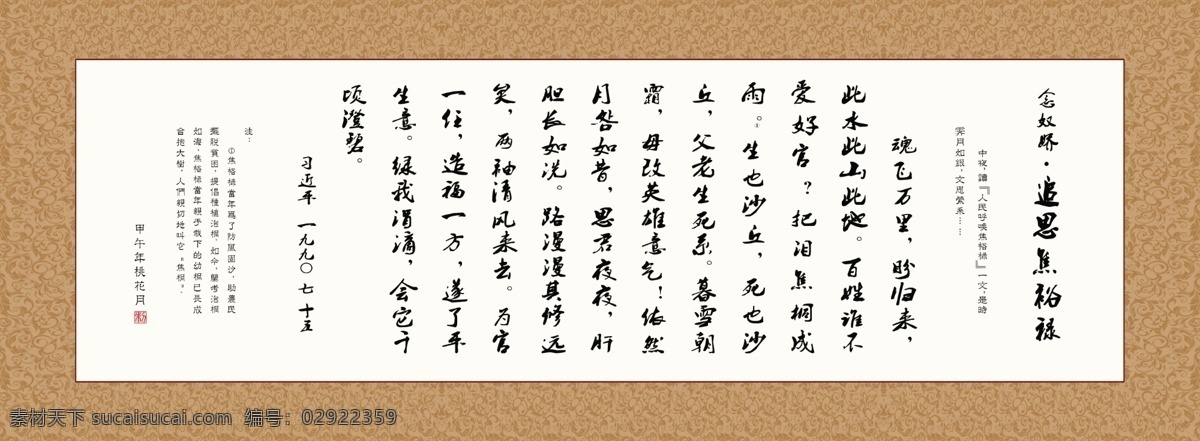 念奴娇·追思焦裕禄
中夜，讀『人民呼喚焦裕祿』一文，是時
霁月如銀，文思縈系……
魂飞万里，盼归来，
此水此山此地。百姓谁不
爱好官？把泪焦桐成
雨。①生也沙丘，死也沙
丘，父老生死系。暮雪朝
霜，毋改英雄意气！依然
月明如昔，思君夜夜，肝
胆长如洗。路漫漫其修远
矣，两袖清风来去。为官
一任，造福一方，遂了平
生意。绿我涓滴，会它千
顷澄碧。
习近平 一九九〇 七 十五
注：
①焦裕祿當年爲了防風固沙，助農民
擺脱貧困，提倡種植泡桐。如今，蘭考泡桐
如海，焦裕祿當年親手栽下的幼桐已長成
合抱大樹，人們親切地叫它“焦桐”。
甲午年桃花月
素材天下 sucaisucai.com 编号：02922359